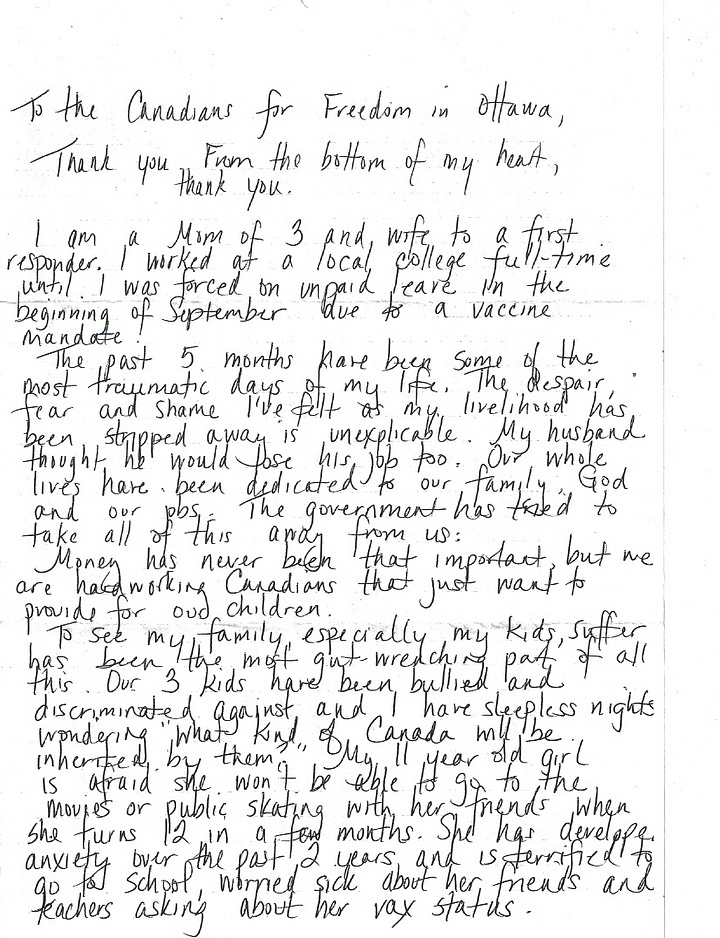 To the Canadians for Freedom in Ottawa,
Thank you. From the bottom of my heart,
thank you.
I am a Mom of 3 and wife to a first
responder. I worked at a local college full-time
until I was forced on unpaid leave in the
beginning of September due to a vaccine
mandate.
The past 5 months have been some of the
most traumatic days of my life. The despair,
fear and shame I've felt as my livelihood has
been stripped away is unexplicable. My husband
thought he would lose his job too. Our whole
lives have been dedicated to our family, God
and our jobs. The government has tried to
take all of this away from us.
Money has never been that important, but we
are hardworking Canadians that just want to
provide for our children.
To see my family, especially my kids, suffer
has been the most gut-wrenching part of all
this. Our 3 kids have been bullied and
discriminated against and I have sleepless nights
wondering "what kind of Canada will be
inherited by them?" My 11 year old girl
is afraid she won't be able to go to the
movies or public skating with her friends when
she turns 12 in a few months. She has develope
anxiety over the past 2 years and is terrified to
go to school, worried sick about her friends and
teachers asking about her vax status.